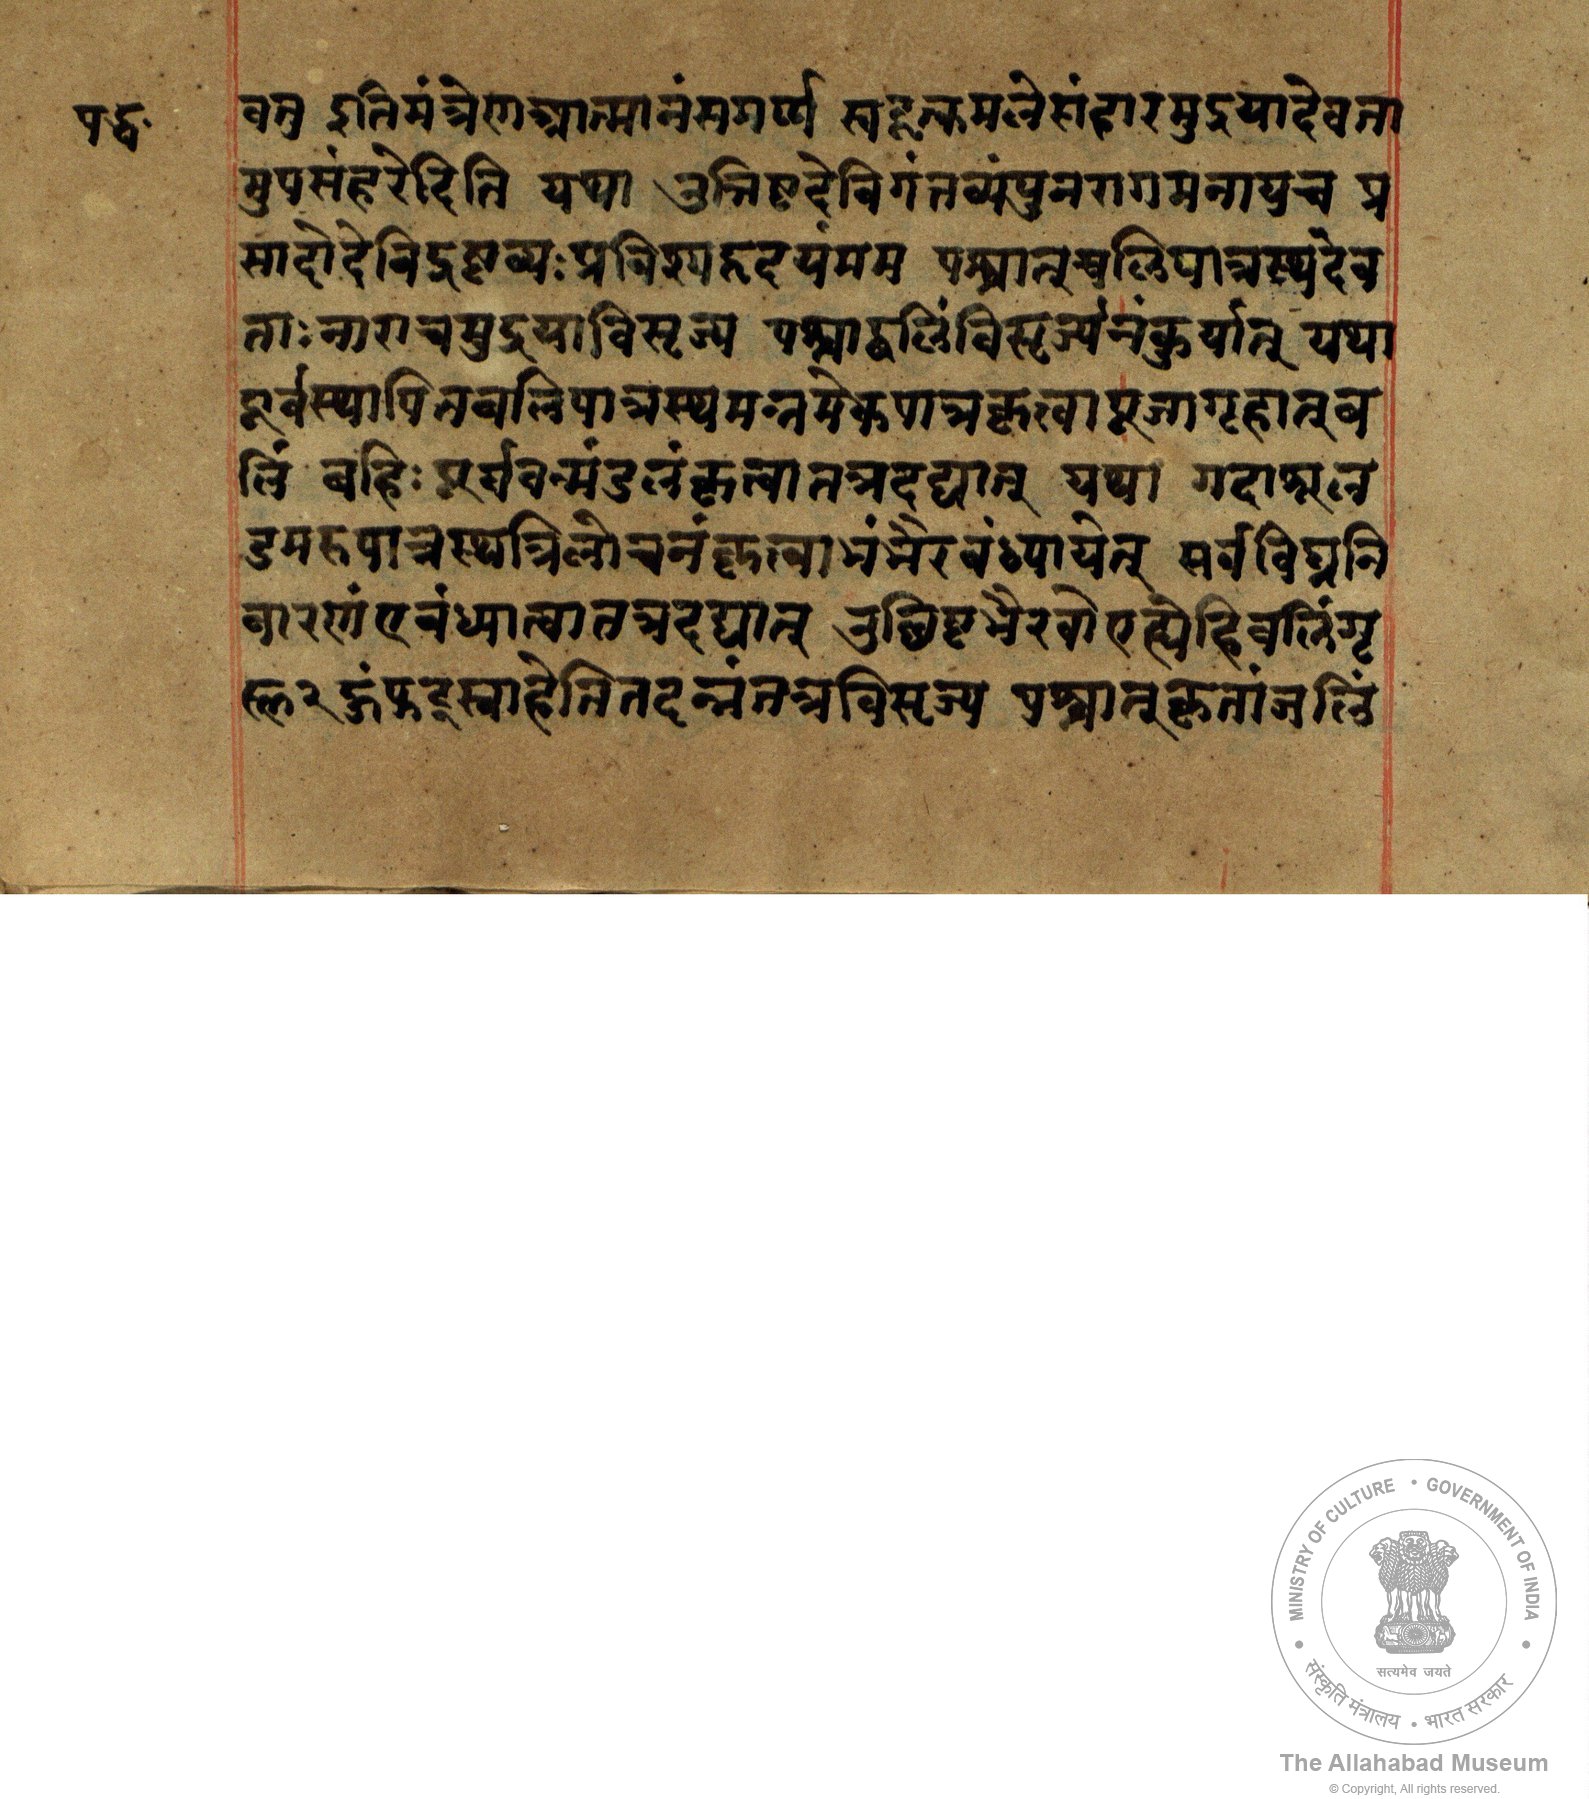 पद्ध
वतु इतिमंत्रेणात्मानंसमर्प्य स्वहृत्कमलेसंहारमुद्रयादेवता
मुपसंहरेदिति यथा उत्तिष्टदेविगंतव्यंपुनरागमनायच प्र
सादोदेविद्रष्टव्यःप्रविश्यहृदयंमम पश्चात्बलिपात्रस्थदेव
ताःनाराचमुद्रयाविसृज्य पश्चाद्बलिंविसृर्ज्यनंकुर्यात् यथा
पूर्वस्थापितबलिपात्रस्थमन्नमेकपात्रकृत्वापूजागृहात्ब
लिं बहिःपूर्ववन्मंडलंकृत्वातत्रदद्यात् यथा गदाशूल
डमरुपात्रस्थत्रिलोचनंकृत्वाभंभैरवंध्यायेत् सर्वविघ्ननि
वारणंएवंध्यात्वातत्रदद्यात् उछिष्टभैरवोएह्येहिबलिंगृ
ह्ण२हुंफट्स्वाहेतितदन्नंतत्रविसृज्य पश्चात्कृतांजलिं
MINISTRY OF CULTURE • GOVERNMENT OF INDIA
सत्यमेव जयते
संस्कृति मंत्रालय • भारत सरकार
The Allahabad Museum
© Copyright, All rights reserved.